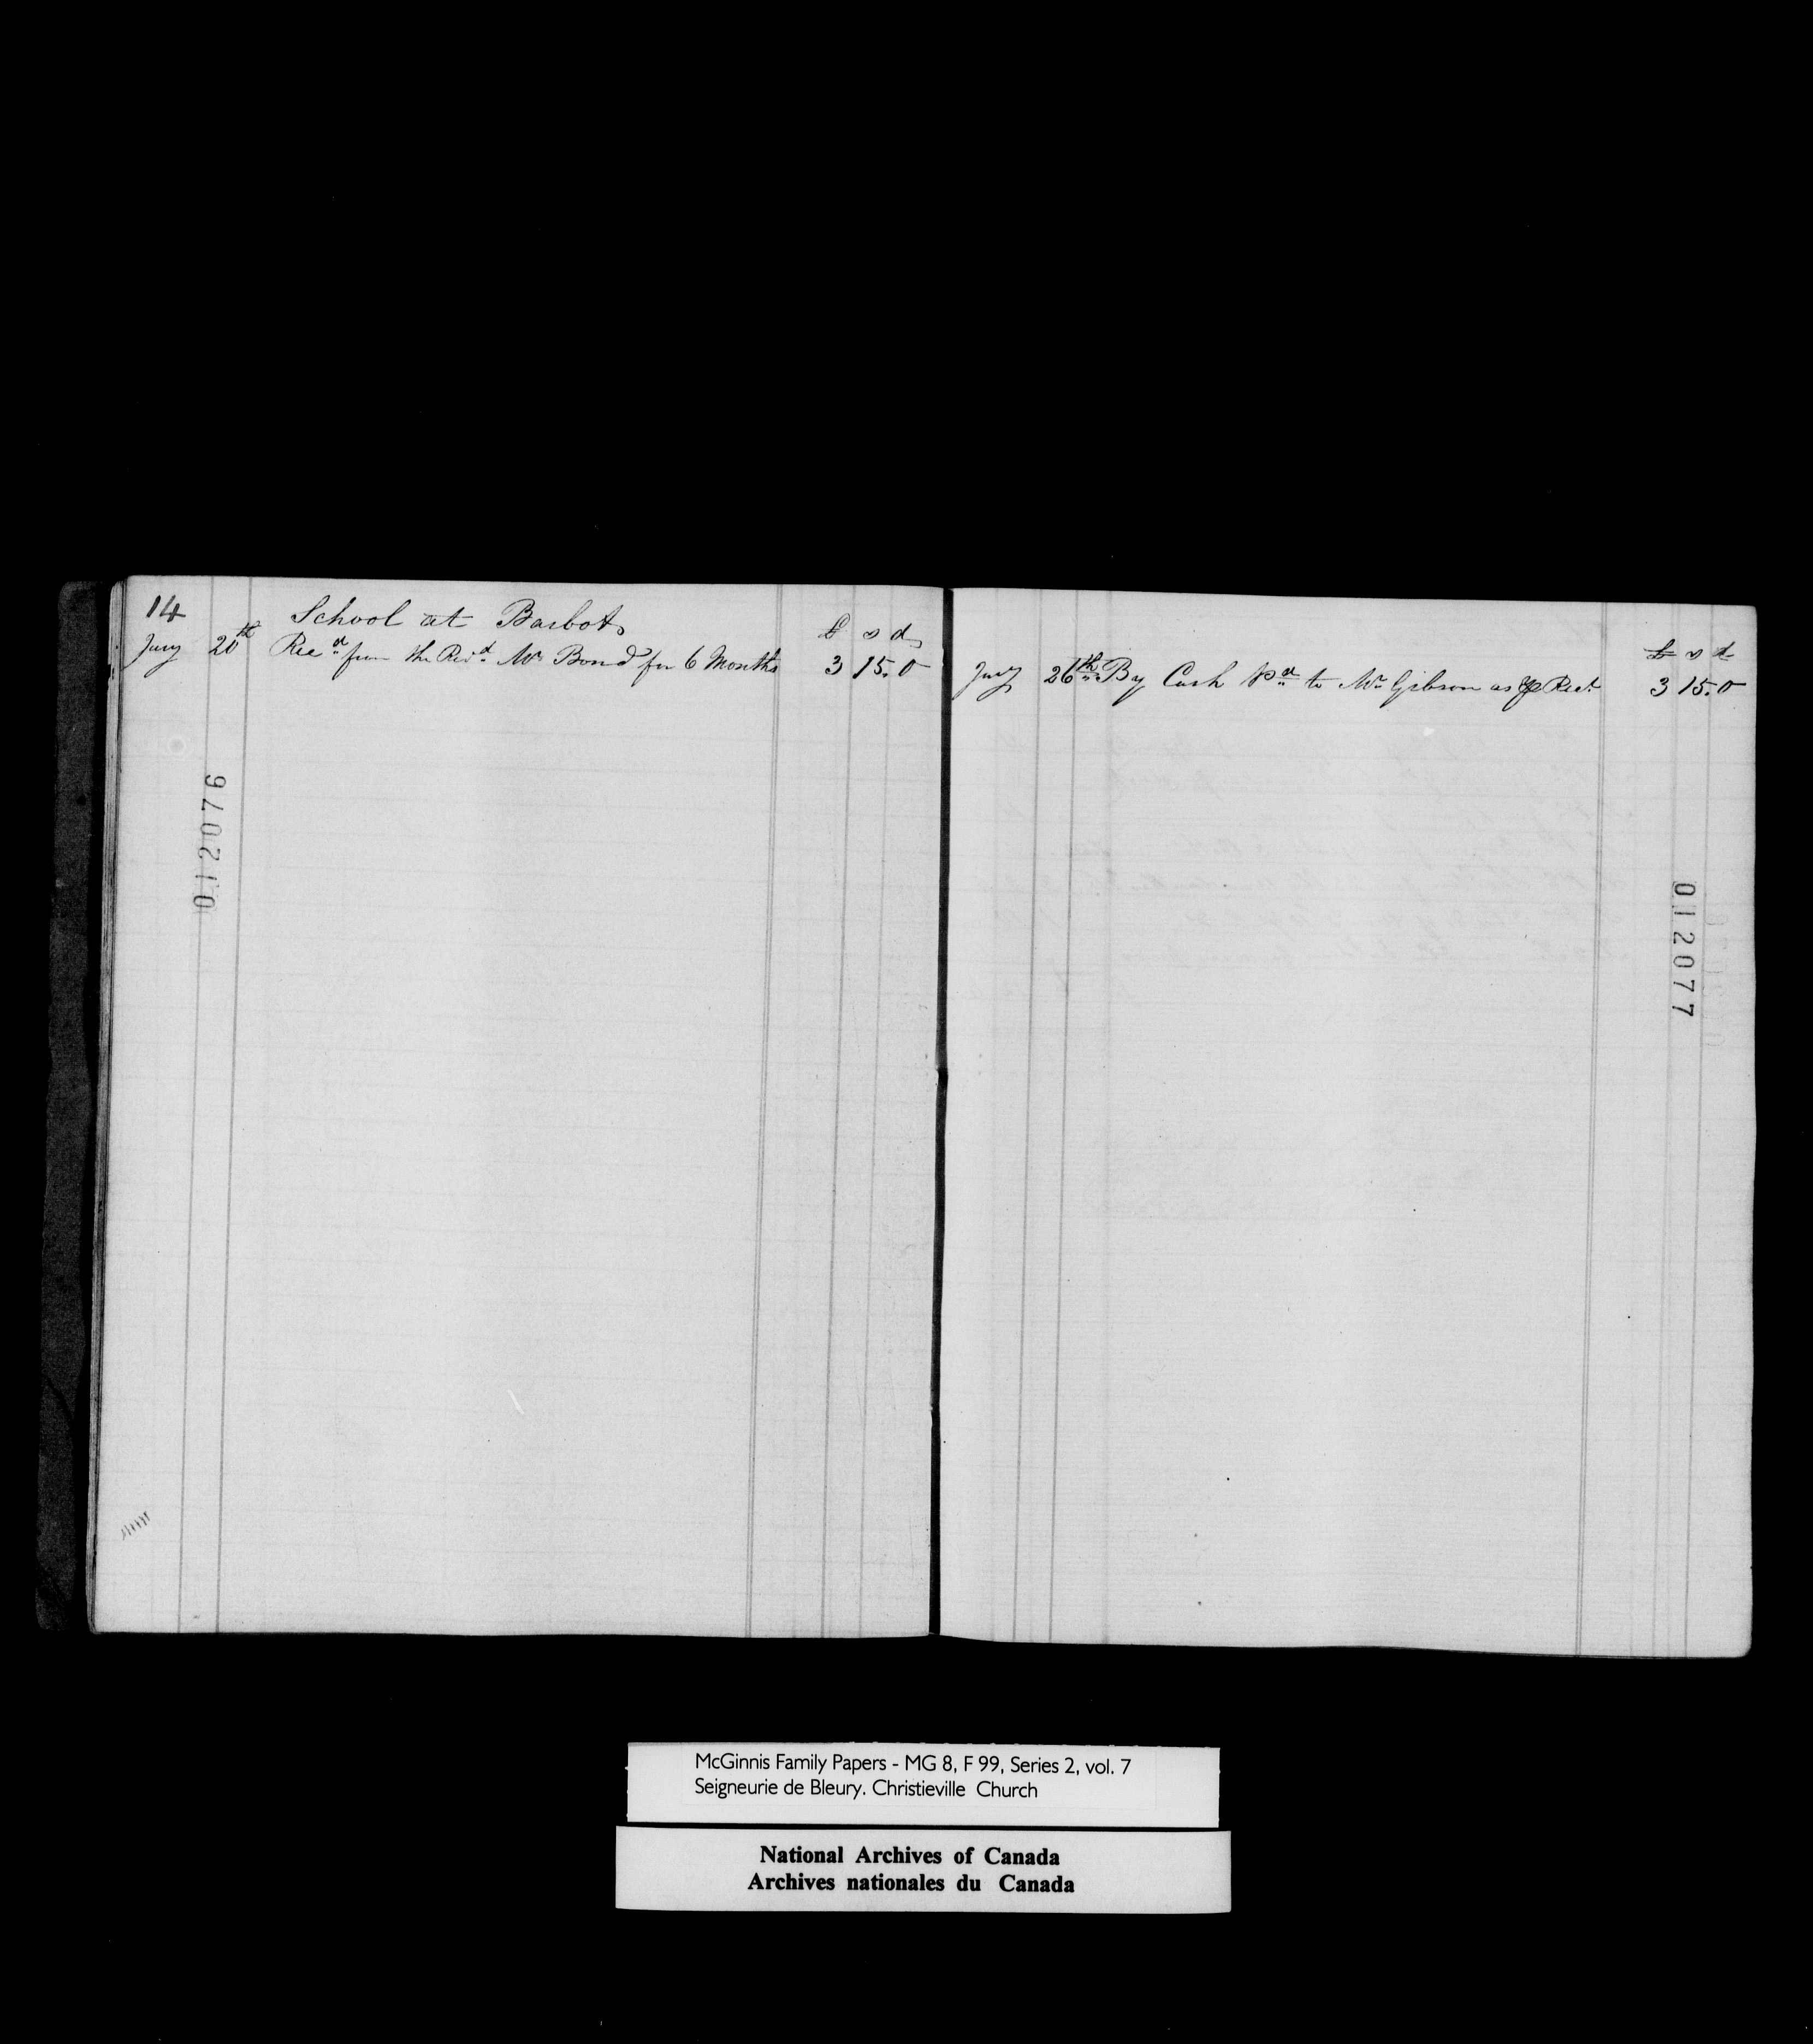 14
School at Barbots
£ s d
Jany 20th Recd from the Revd Mr Bond for 6 Months 3 15.0
012076
£ s d
Jany 26th By Cash Pd to Mr Gibson as ⅌ Rect 3 15.0
012077
McGinnis Family Papers - MG 8, F 99, Series 2, vol. 7
Seigneurie de Bleury. Christieville Church
National Archives of Canada
Archives nationales du Canada